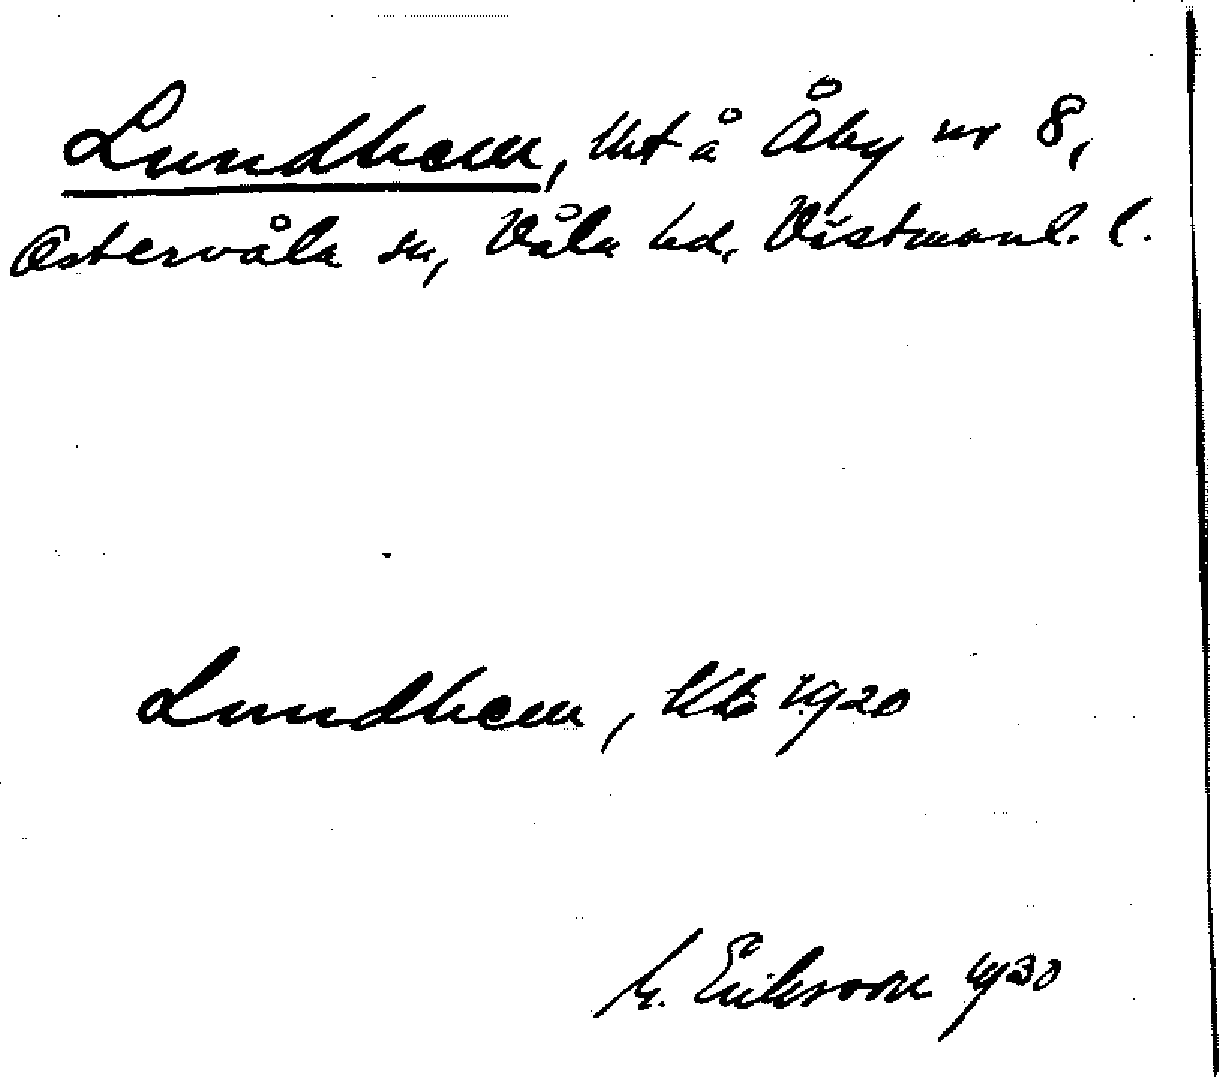 Lundhem, lht å Åby nr 8,
Östervåla sn, Våla hd, Västmanl. l.
Lundhem, Kb 1920
M. Eriksson 1930